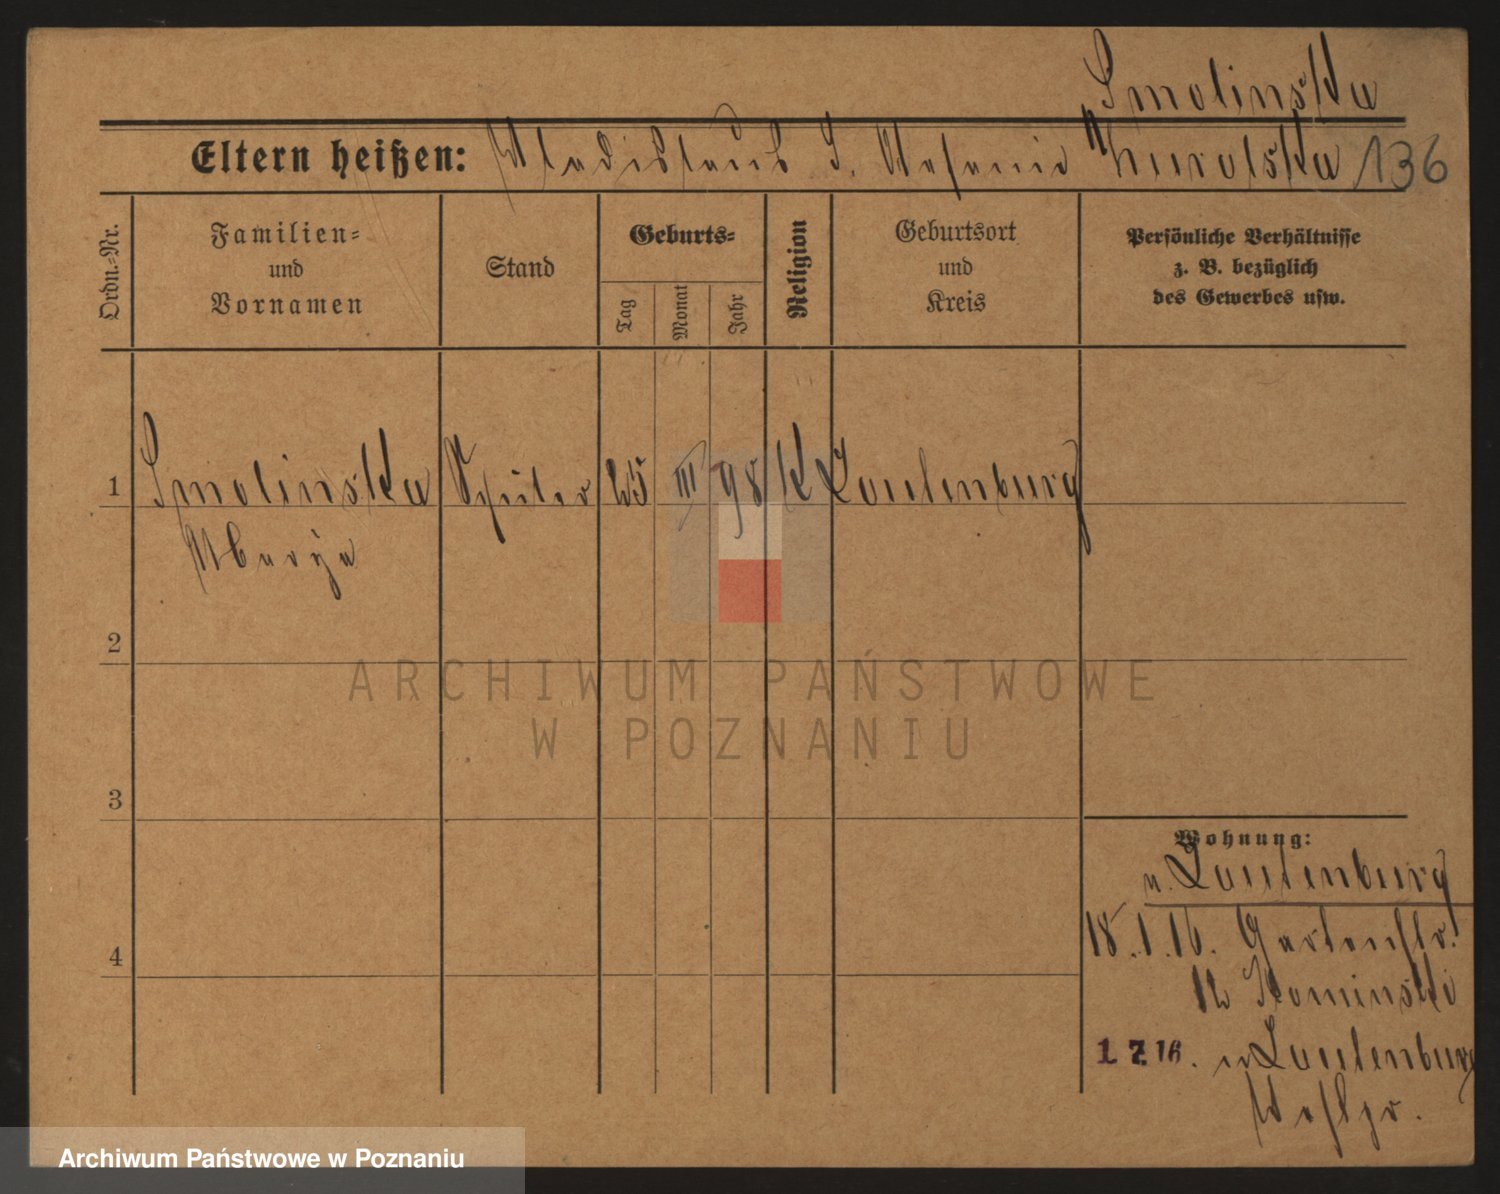 Smolinska
Eltern heißen: Wladislaus S. Stefanie
136
Ordn.-Nr.
Familien-
und
Vornamen
Stand
Geburts-
Tag
Monat
Jahr
Religion
Geburtsort
und
Kreis
Persönliche Verhältnisse
z. B. bezüglich
des Gewerbes usw.
1 Smolinska Schüler 25 III 98 K Lautenburg
Marya
2
3
4
Wohnung:
n. Lautenburg
18.1.16. Gartenstr.
12 Kominski
1.7.16. n Lautenburg
Westpr.
ARCHIWUM PAŃSTWOWE
W POZNANIU
Archiwum Państwowe w Poznaniu